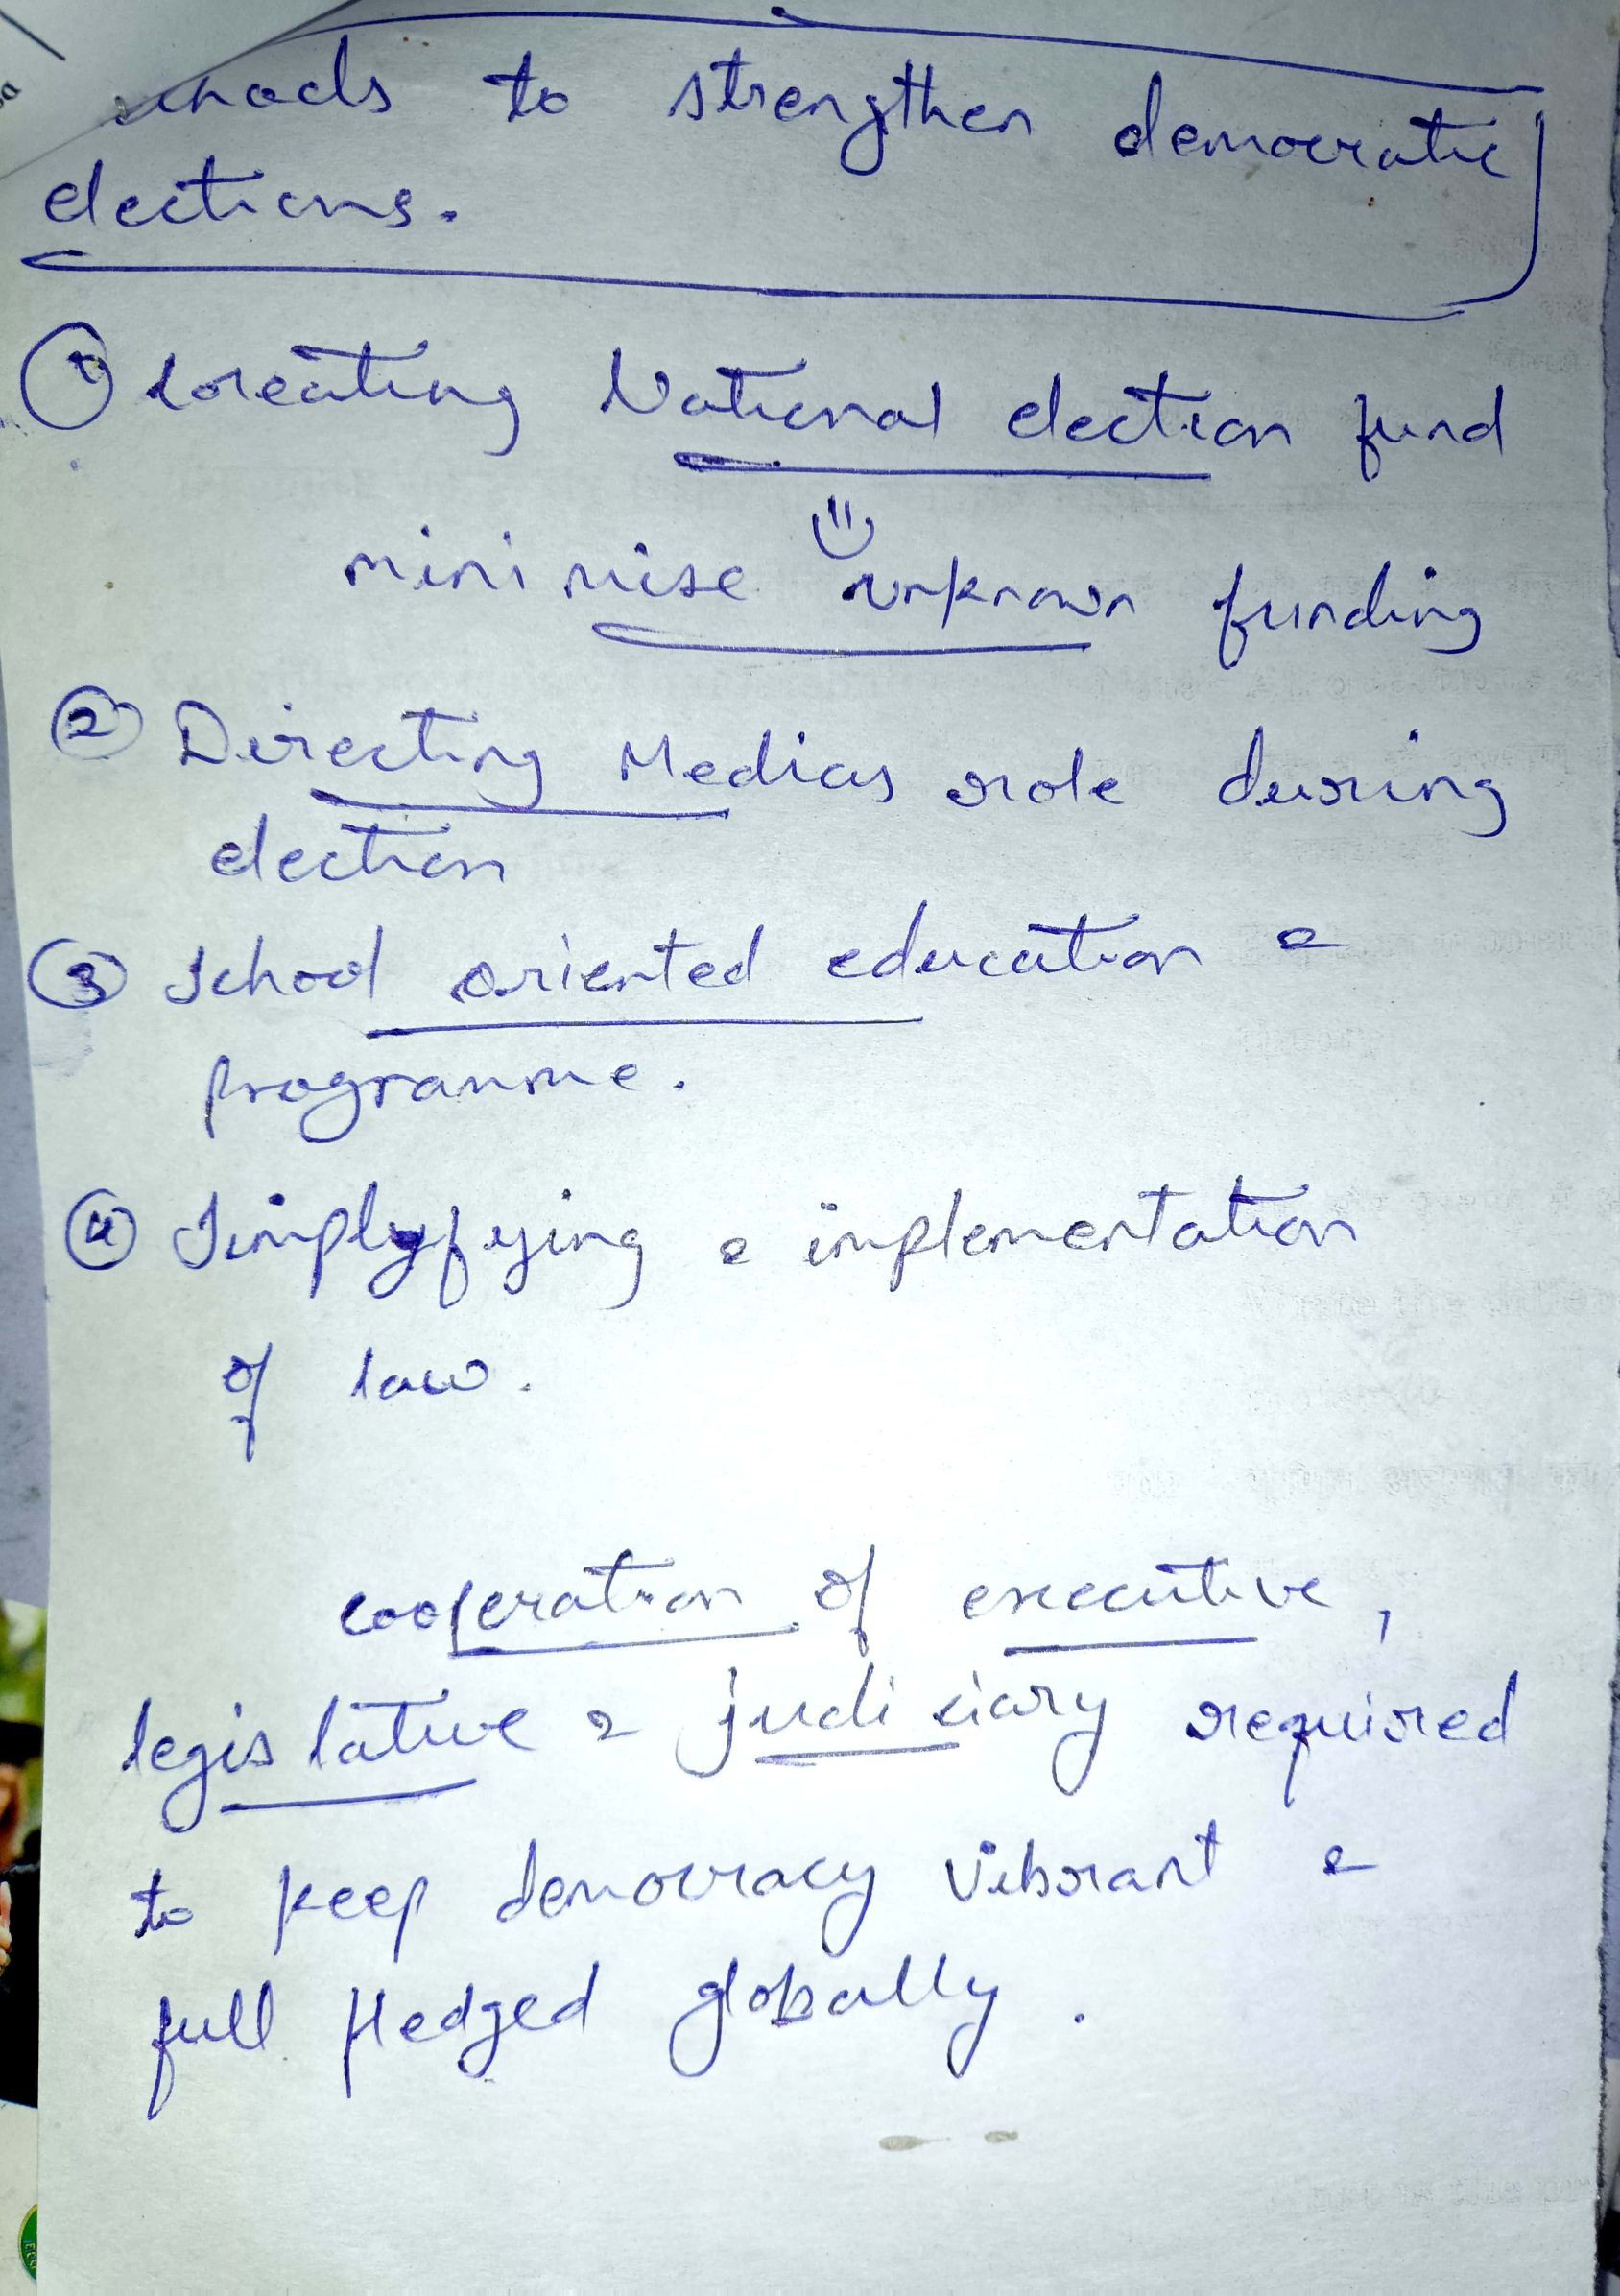 to strengthen democratic
elections.
① Creating National election fund
minimise unknown funding
② Directing Medias role during
election
③ School oriented education &
programme.
④ Simplyfying & implementation
of law.
cooperation of executive,
legislative & judiciary required
to keep democracy vibrant &
full fledged globally.